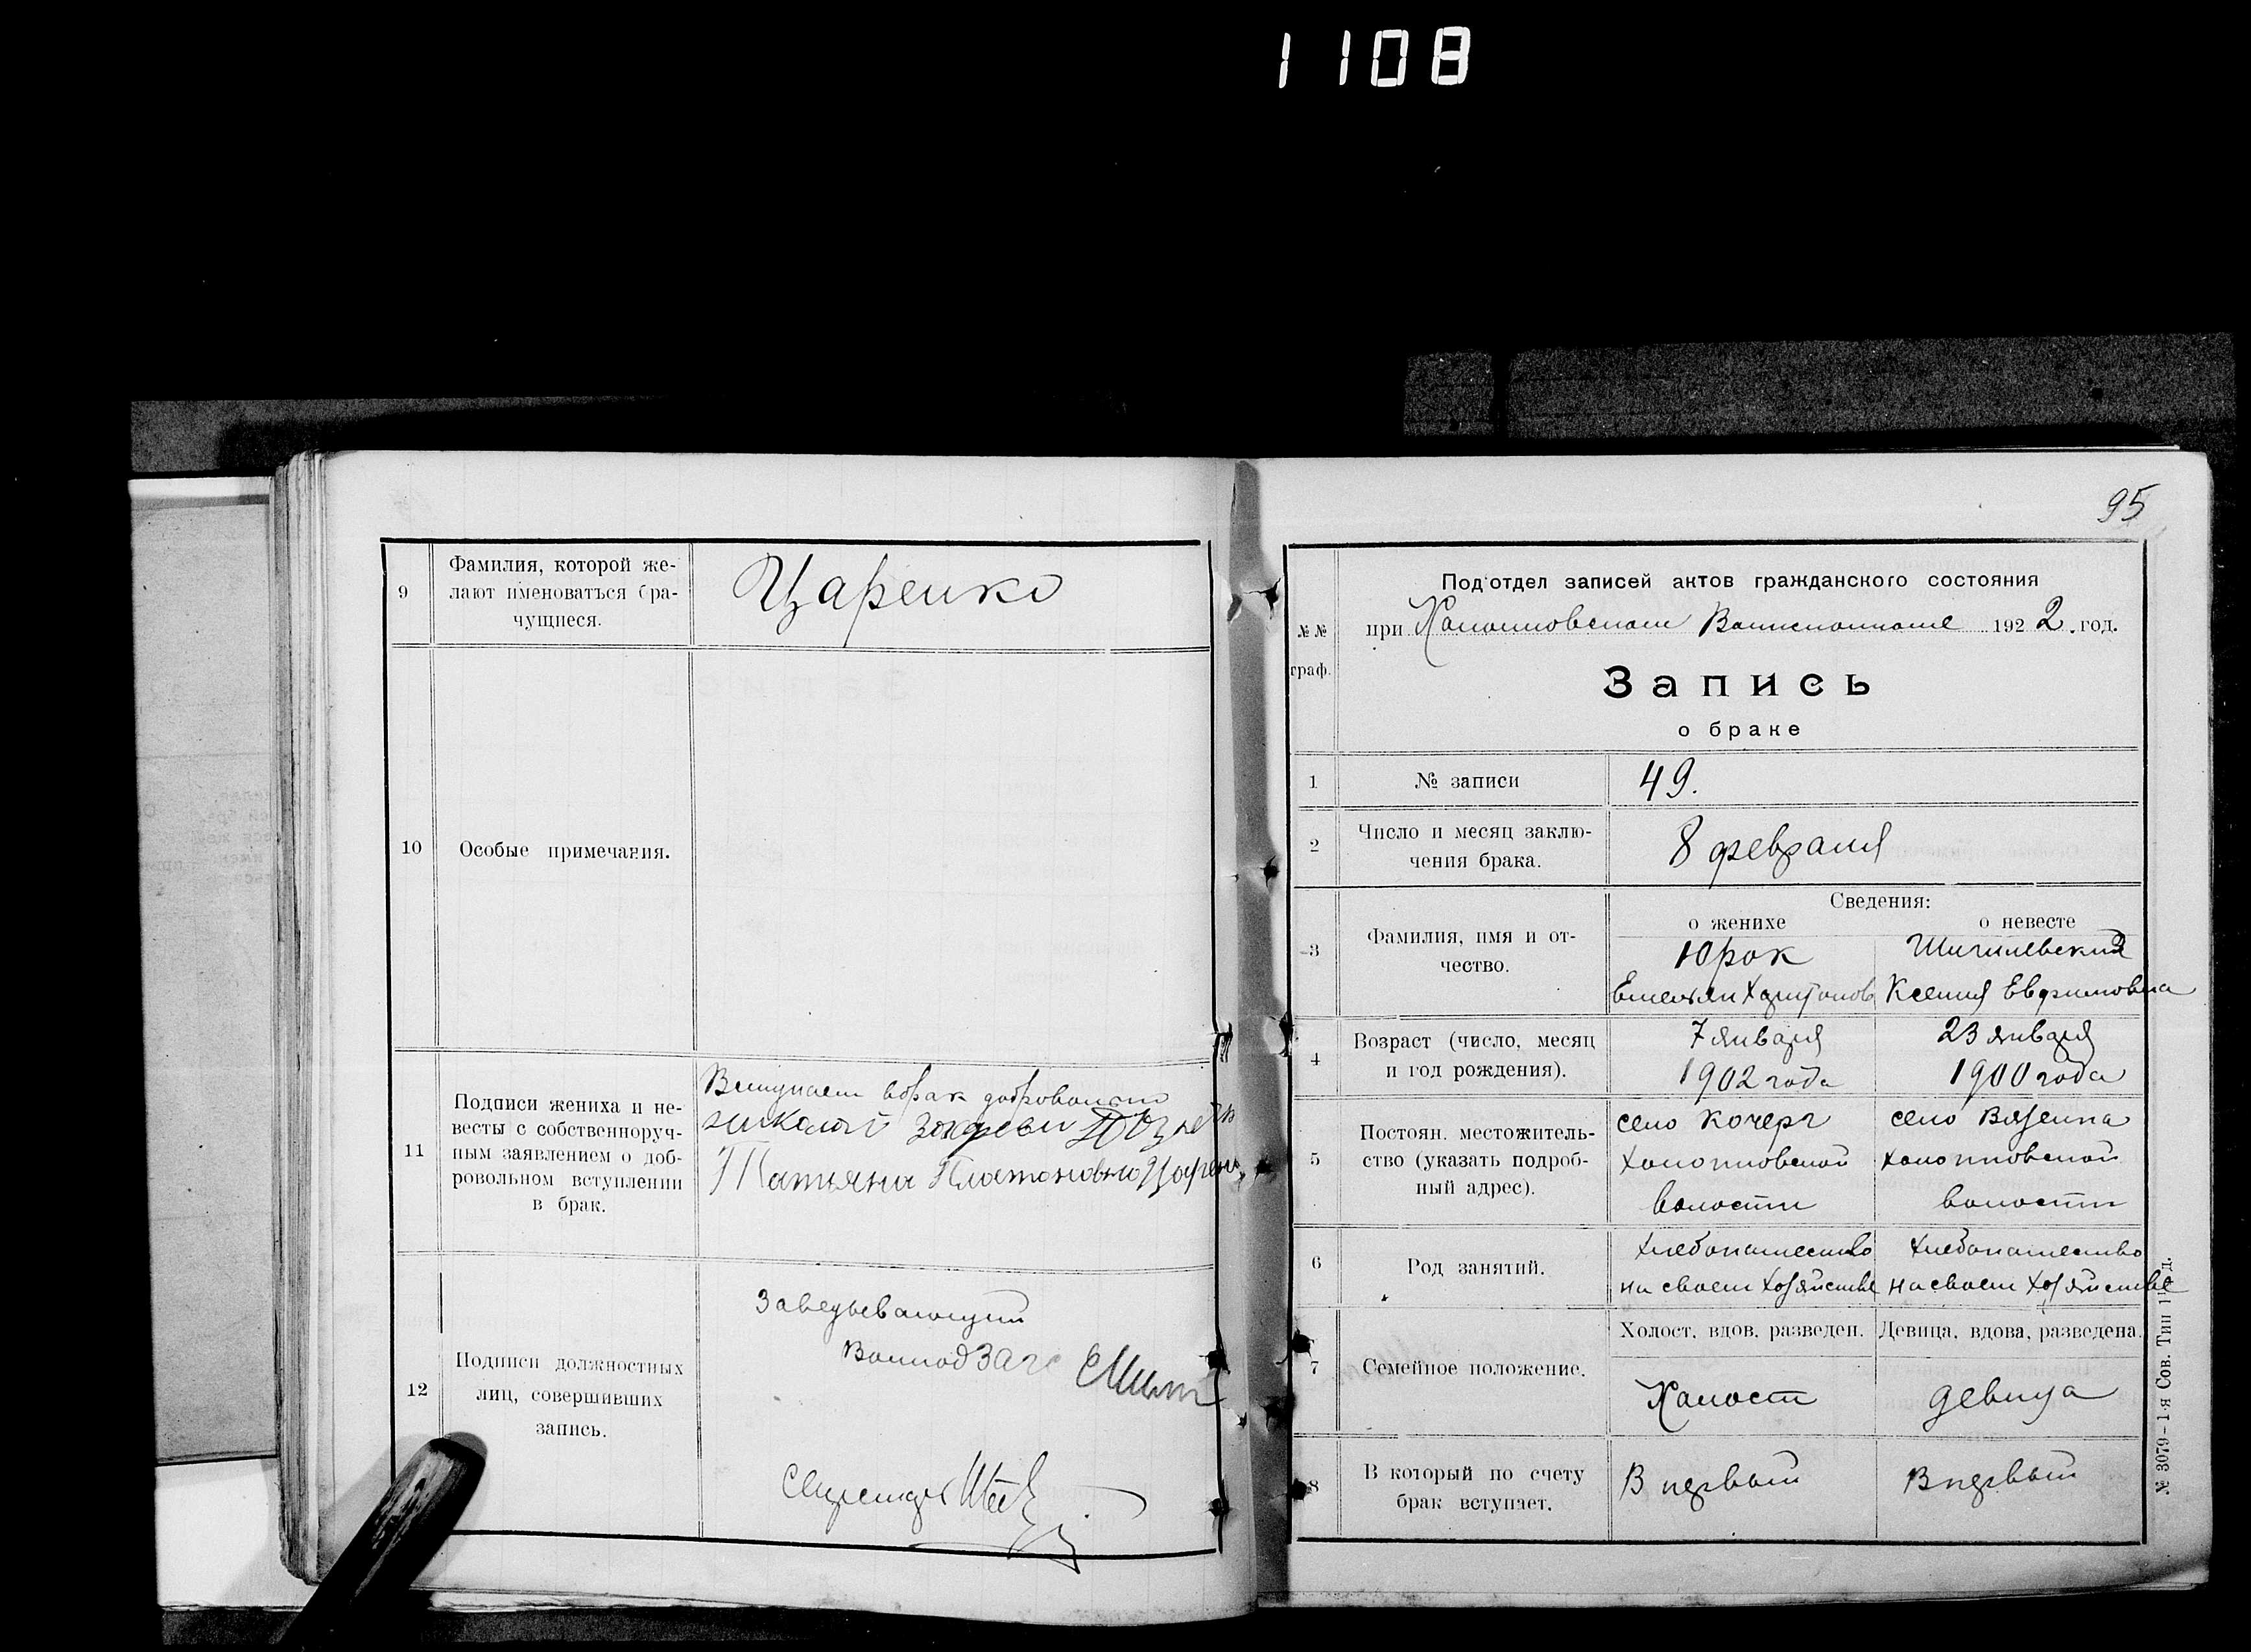 1108
9
Фамилия, которой же-
лают именоваться бра-
чущиеся.
Царенко
10
Особые примечания.
11
Подписи жениха и не-
весты с собственноруч-
ным заявлением о доб-
ровольном вступлении
в брак.
Вступаем в брак добровольно
Татьяна Платоновно Царен
12
Подписи должностных
лиц, совершивших
запись.
Заведывающий
Секретарь
95
№№
граф.
Под'отдел записей актов гражданского состояния
при 1922. год.
Запись
о браке
1
№ записи
49.
2
Число и месяц заклю-
чения брака.
8 февраля
3
Фамилия, имя и от-
чество.
Сведения:
о женихе
о невесте
Юрок
Емельян Харитонов
Ксения Евфимовна
4
Возраст (число, месяц
и год рождения).
7 января
1902 года
23 января
1900 года
5
Постоян. местожитель-
ство (указать подроб-
ный адрес).
село Кочерг
Хоромновской
волости
село Вязенка
волости
6
Род занятий.
Хлебопашество
на своем хозяйстве
Хлебопашество
на своем хозяйстве
7
Семейное положение.
Холост, вдов, разведен.
Девица, вдова, разведена.
Холост
девица
8
В который по счету
брак вступает.
В первый
В первый
№ 3079-1-я Сов. Тип